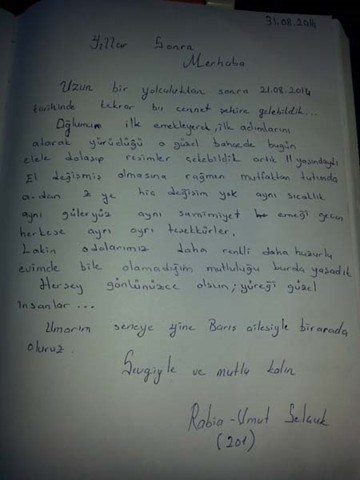 31.08.2014
Yıllar Sonra
Merhaba
Uzun bir yolculuktan sonra 21.08.2014
tarihinde tekrar bu cennet şehire gelebildik...
Oğlumun ilk emekleyerek, ilk adımlarını
atarak yürüdüğü o güzel bahçede bugün
elele dolaşıp resimler çekebildik artık 11 yaşındaydı
El değişmiş olmasına rağmen mutfaktan tutunda
a-dan z ye hiç değişim yok aynı sıcaklık
aynı güleryüz aynı samimiyet emeği geçen
herkese ayrı ayrı teşekkürler.
Lakin odalarımız daha renkli daha huzurlu
evimde bile olamadığım mutluluğu burda yaşadık
Herşey gönlünüzce olsun, yüreği güzel
insanlar...
Umarım seneye yine Barış ailesiyle birarada
oluruz.
Sevgiyle ve mutlu kalın
Rabia-Umut Selçuk
(201)